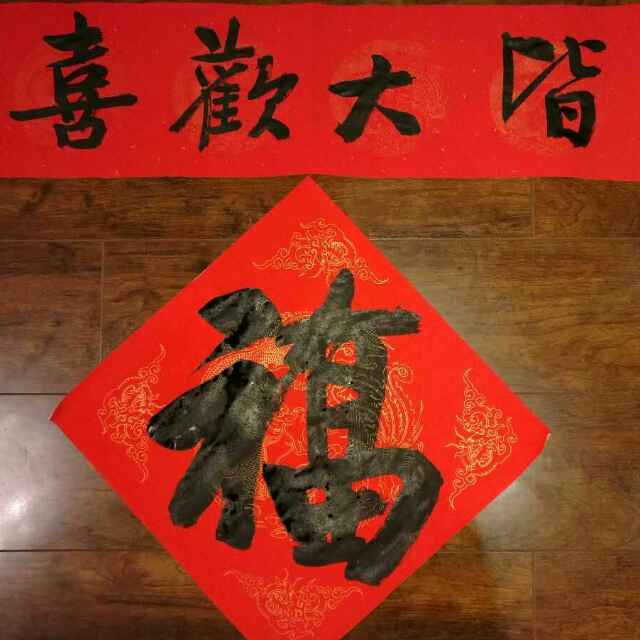 皆大歡喜
福